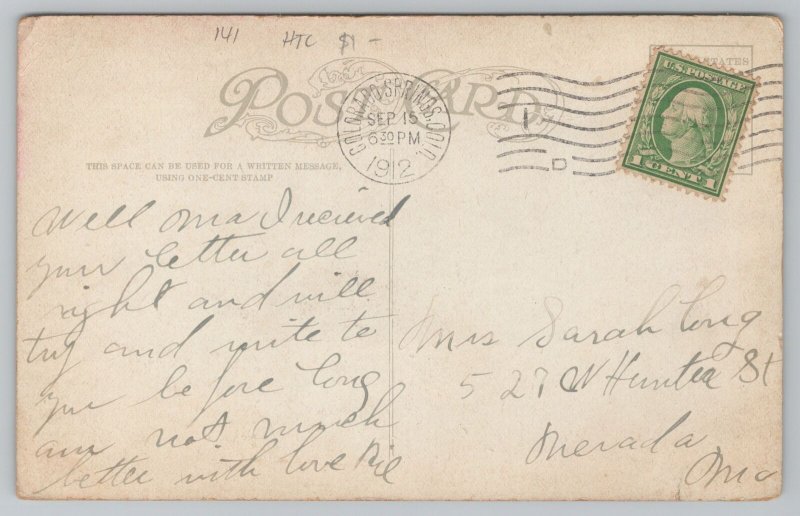 141 HTC $1-
POST CARD
COLORADO SPRINGS, COLO.
SEP 15
630 PM
1912
1
D
STATES
U.S. POSTAGE
1 CENT 1
THIS SPACE CAN BE USED FOR A WRITTEN MESSAGE,
USING ONE-CENT STAMP
Well Ma I recieved
your letter all
right and will
try and write to
you before long
am not much
better with love
Mrs Sarah Long
527 W Hunter St
Nevada
Mo